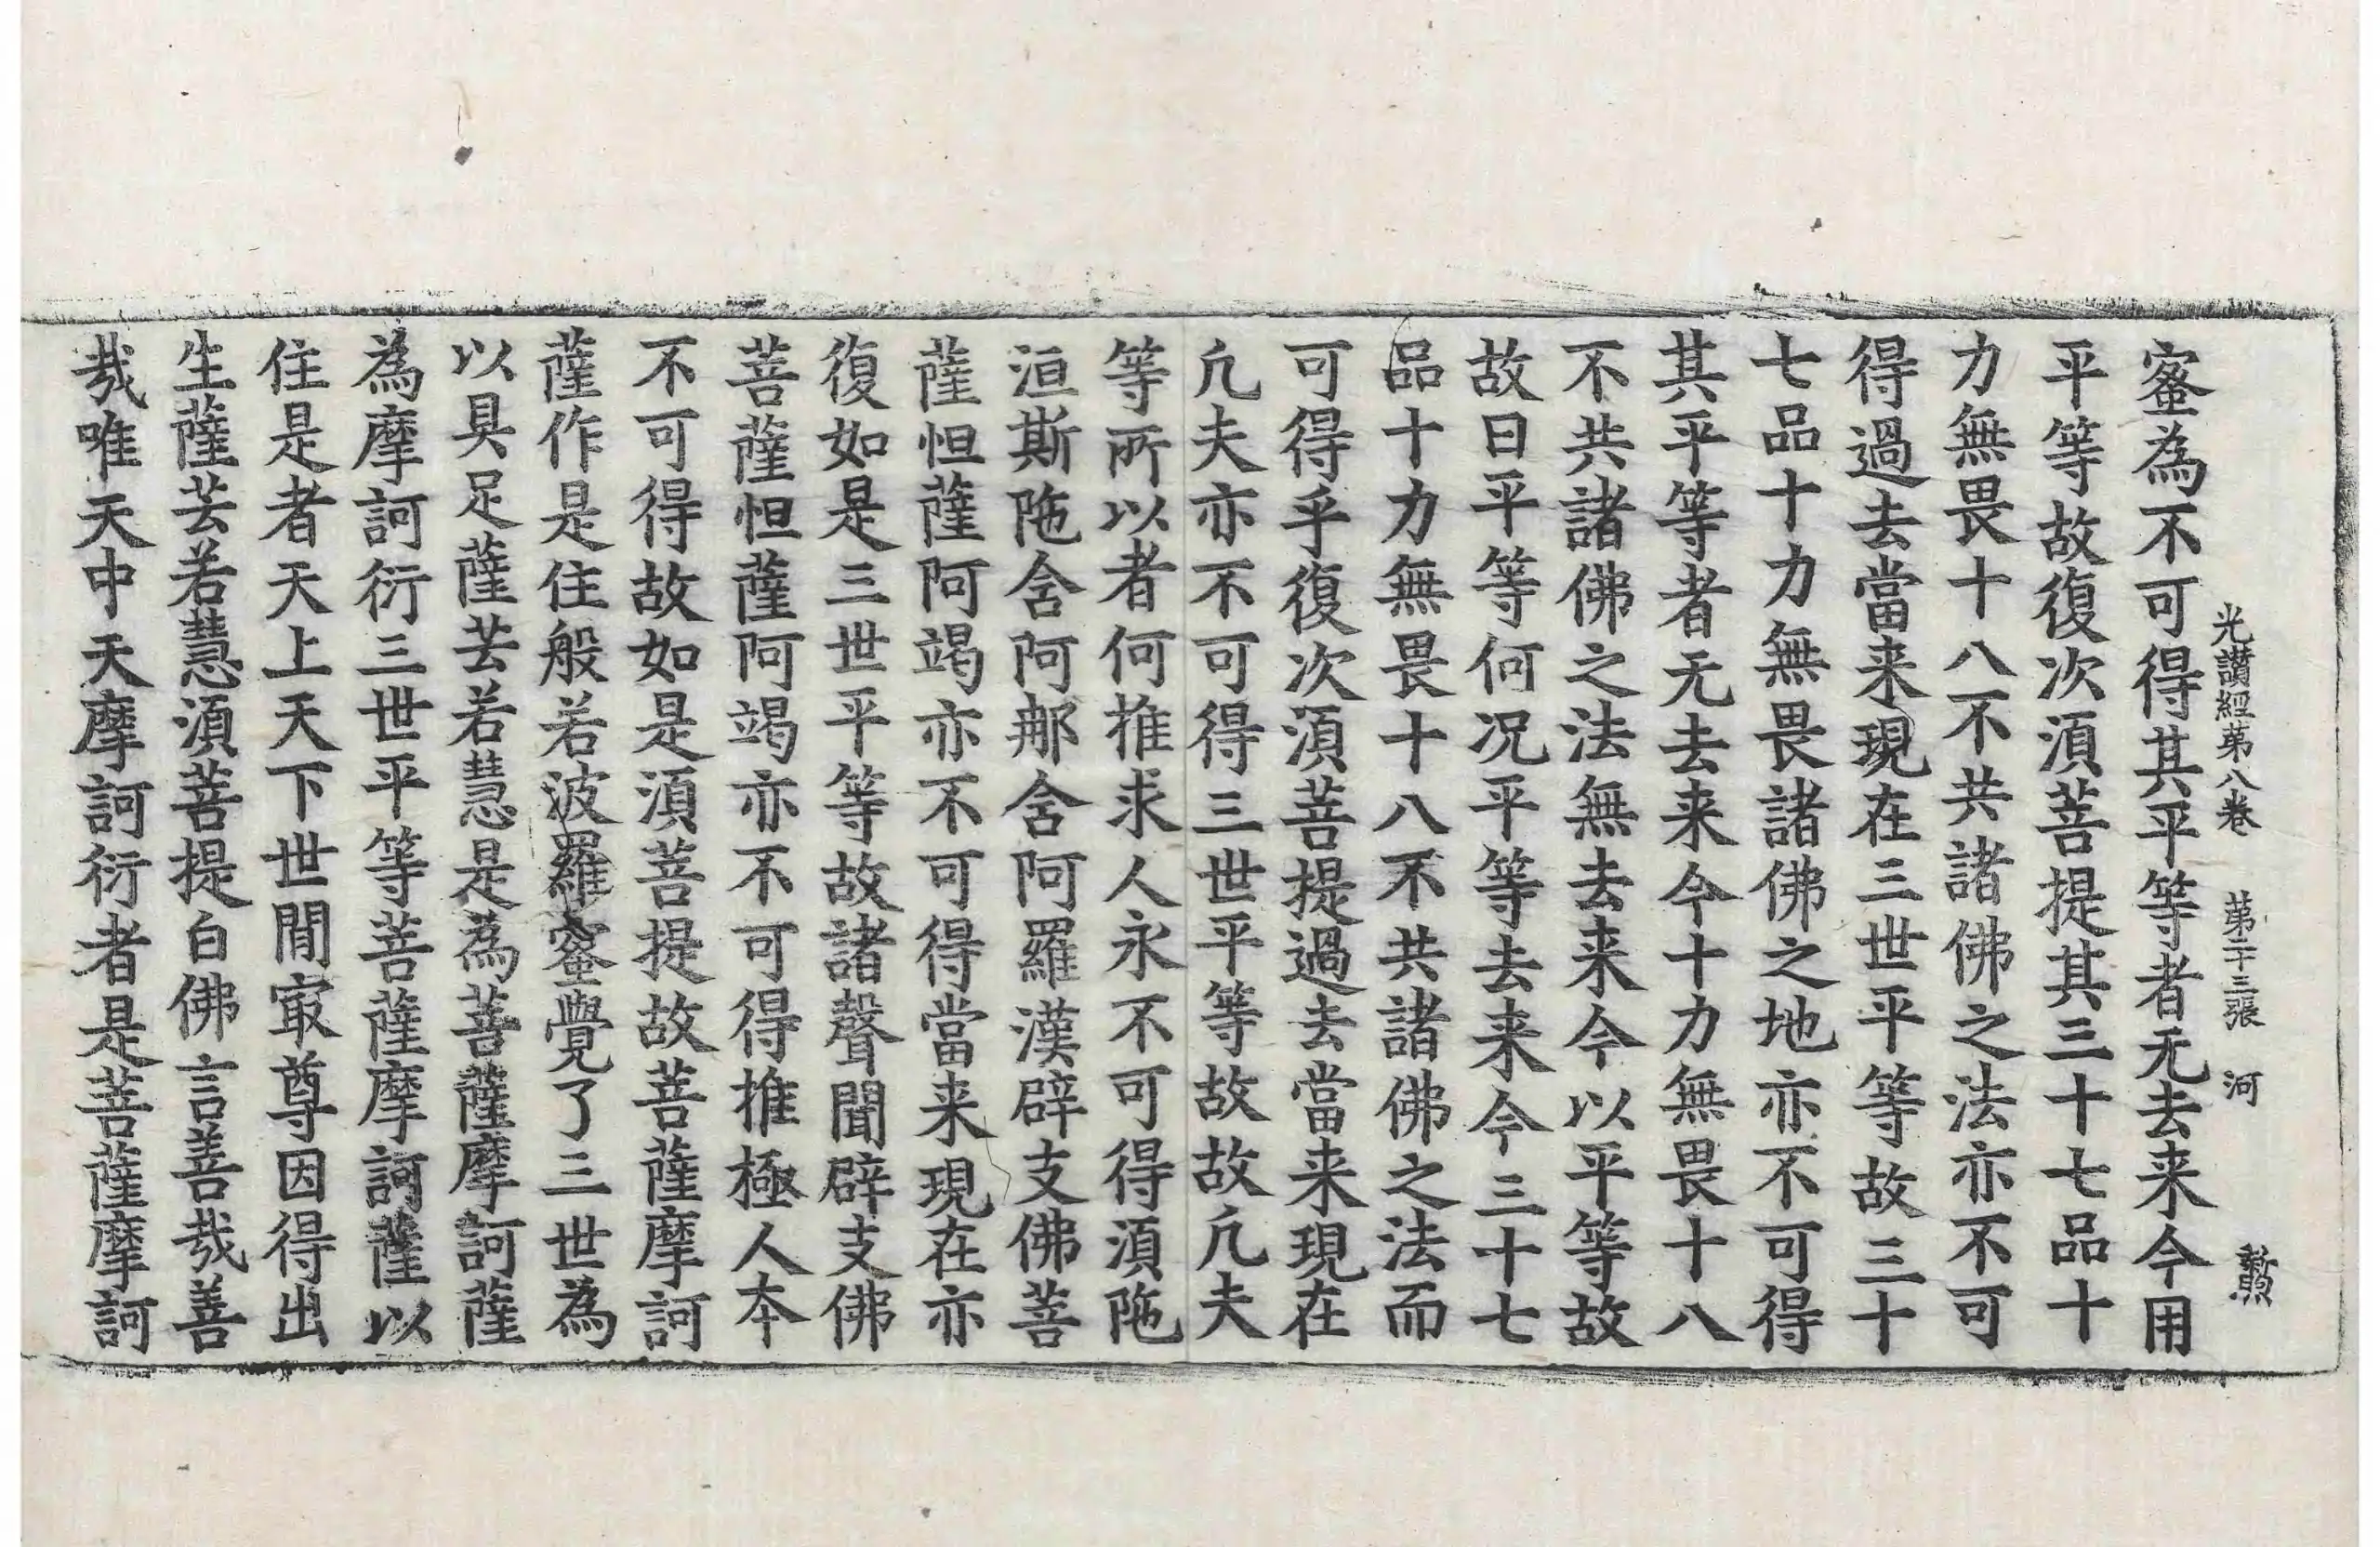 光讃經第八卷　第二十三張　河　彫煦
蜜為不可得其平等者无去来今用
平等故復次湏菩提其三十七品十
力無畏十八不共諸佛之法亦不可
得過去當来現在三世平等故三十
七品十力無畏諸佛之地亦不可得
其平等者无去来今十力無畏十八
不共諸佛之法無去来今以平等故
故曰平等何况平等去来今三十七
品十力無畏十八不共諸佛之法而
可得乎復次湏菩提過去當来現在
凢夫亦不可得三世平等故故凢夫
等所以者何推求人永不可得湏陁
洹斯陁含阿那含阿羅漢辟支佛菩
薩怛薩阿竭亦不可得當来現在亦
復如是三世平等故諸聲聞辟支佛
菩薩怛薩阿竭亦不可得推極人本
不可得故如是湏菩提故菩薩摩訶
薩作是住般若波羅蜜覺了三世為
以具足薩芸若慧是為菩薩摩訶薩
為摩訶衍三世平等菩薩摩訶薩以
住是者天上天下世間㝡尊因得出
生薩芸若慧湏菩提白佛言善哉善
哉唯天中天摩訶衍者是菩薩摩訶